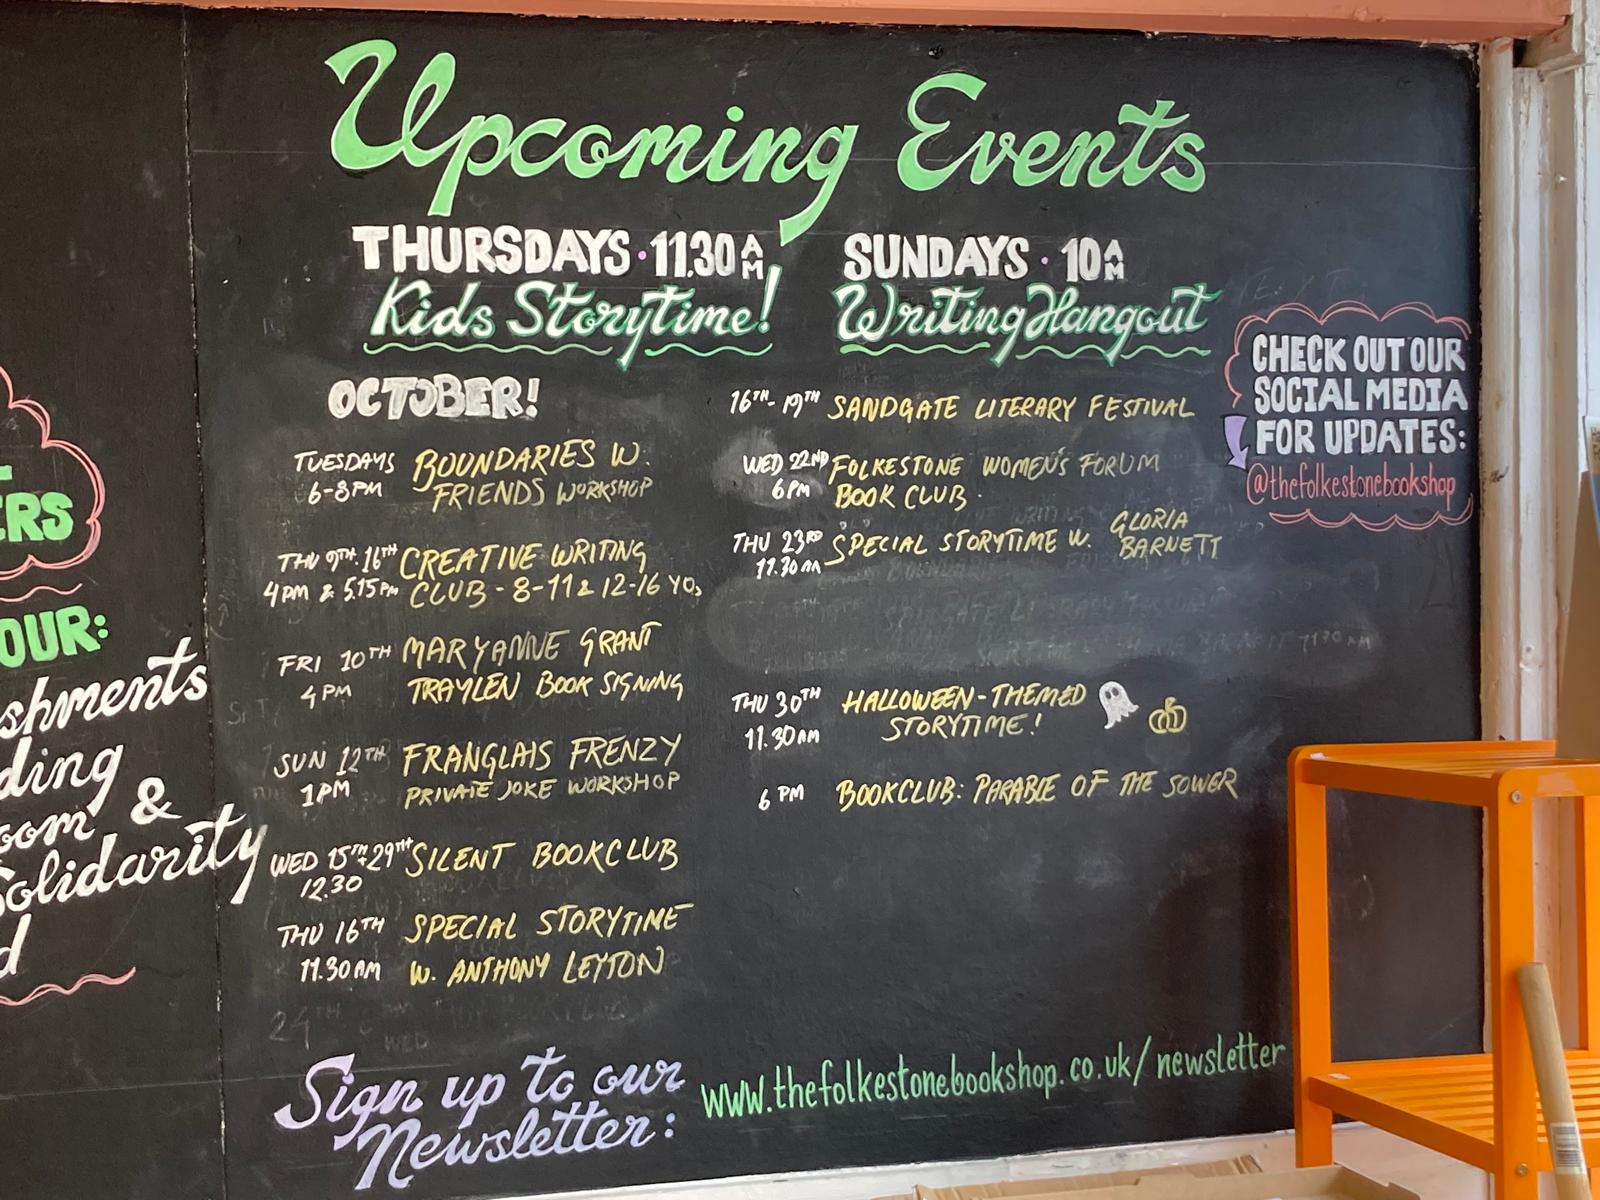 Upcoming Events
THURSDAYS · 11.30 AM
Kids Storytime!
SUNDAYS · 10 AM
Writing Hangout
OCTOBER!
TUESDAYS
6-8PM
BOUNDARIES W.
FRIENDS WORKSHOP
THU 9TH. 16TH
4PM & 5.15PM
CREATIVE WRITING
CLUB - 8-11 & 12-16 YOs
FRI 10TH
4PM
MARYANNE GRANT
TRAYLEN BOOK SIGNING
SUN 12TH
1PM
FRANGLAIS FRENZY
PRIVATE JOKE WORKSHOP
WED 15TH + 29TH
12.30
SILENT BOOKCLUB
THU 16TH
11.30AM
SPECIAL STORYTIME
W. ANTHONY LEYTON
16TH - 19TH
SANDGATE LITERARY FESTIVAL
WED 22ND
6PM
FOLKESTONE WOMEN'S FORUM
BOOK CLUB.
THU 23RD
11.30AM
SPECIAL STORYTIME W. GLORIA
BARNETT
THU 30TH
11.30AM
HALLOWEEN-THEMED
STORYTIME!
6 PM
BOOKCLUB: PARABLE OF THE SOWER
CHECK OUT OUR
SOCIAL MEDIA
FOR UPDATES:
@thefolkestonebookshop
Sign up to our
Newsletter:
www.thefolkestonebookshop.co.uk/newsletter
ERS
OUR:
shments
ding
oom &
Solidarity
d